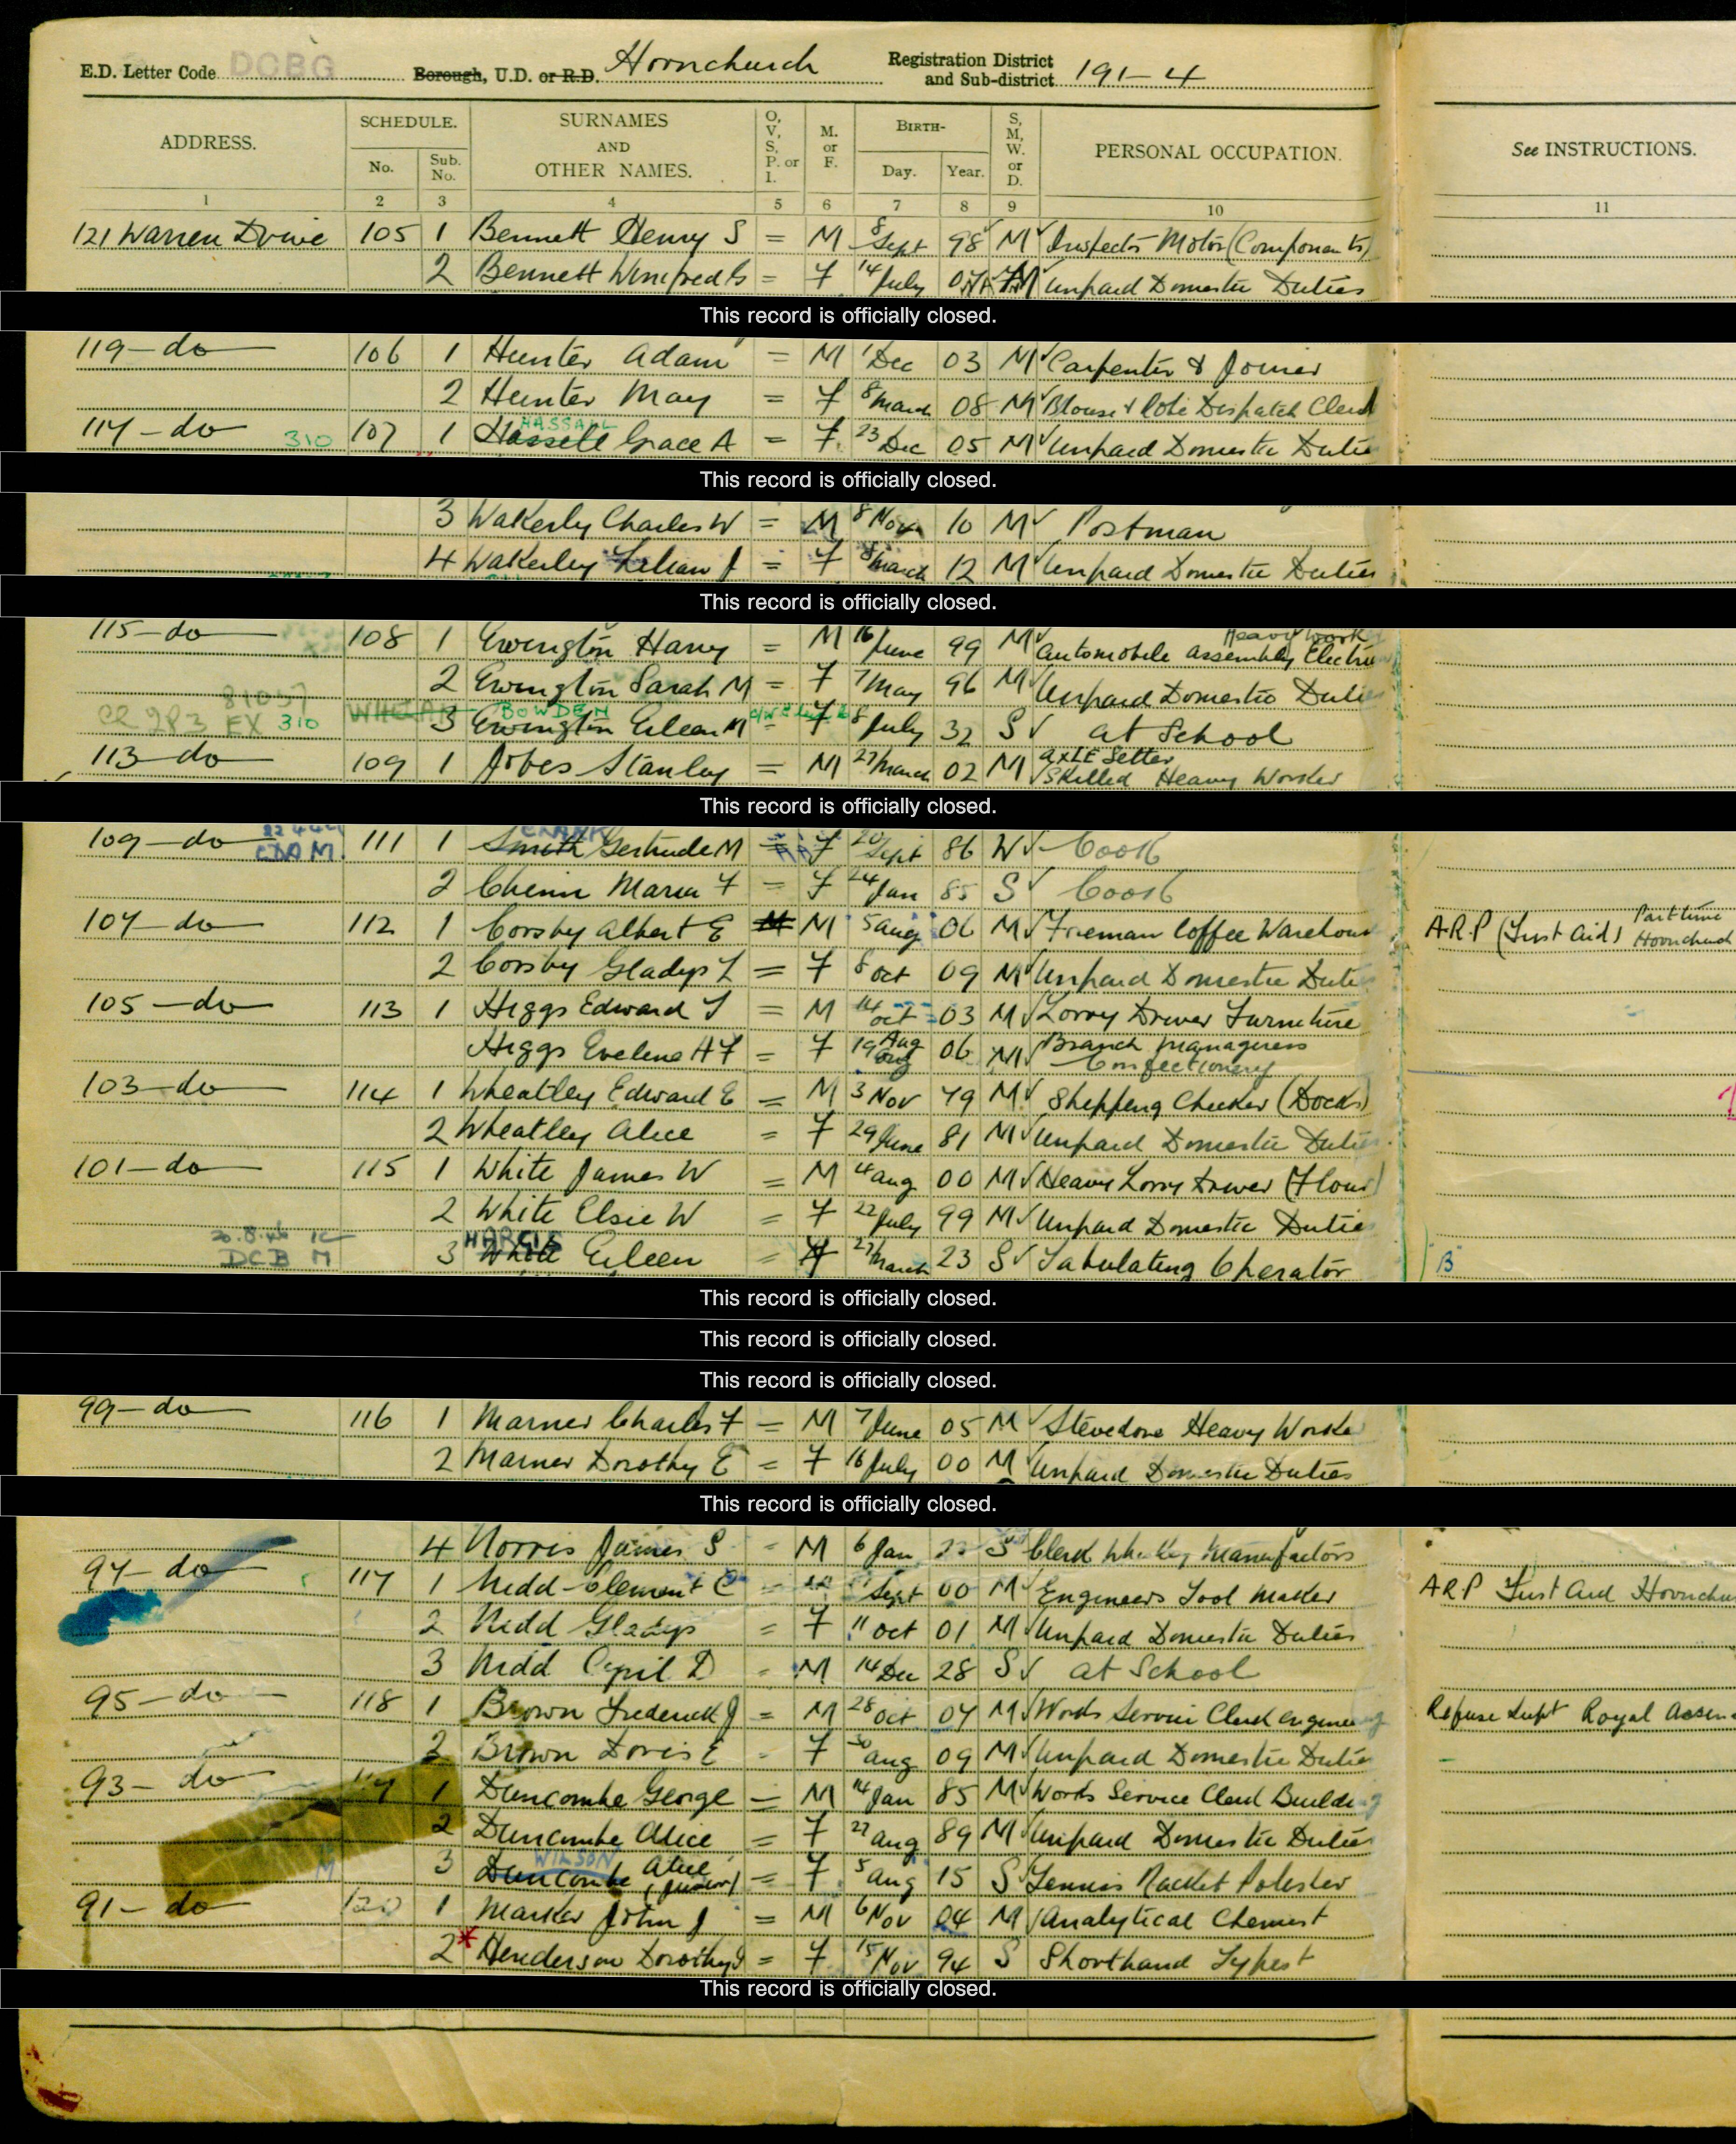 E.D. Letter Code DCBG Borough, U.D. or R.D. Hornchurch Registration District and Sub-district 191-4
ADDRESS. SCHEDULE. No. Sub. No. SURNAMES AND OTHER NAMES. O, V, S, P. or I. M. or F. BIRTH- Day. Year. S, M, W. or D. PERSONAL OCCUPATION. See INSTRUCTIONS.
1 2 3 4 5 6 7 8 9 10 11
121 Warren Drive 105 1 Bennett Henry S = M 8 Sept 98 M Inspector Motor (Components)
2 Bennett Winifred G = F 14 July 07 M Unpaid Domestic Duties
This record is officially closed.
119 - do 106 1 Hunter Adam = M 1 Dec 03 M Carpenter & Joiner
2 Hunter May = F 8 March 08 M Blouse & Robe Dispatch Clerk
117 - do 310 107 1 Hassell HASSALL Grace A = F 23 Dec 05 M Unpaid Domestic Duties
This record is officially closed.
3 Wakerly Charles W = M 8 Nov 10 M Postman
4 Wakerley Lilian J = F 8 March 12 M Unpaid Domestic Duties
This record is officially closed.
115 - do 108 1 Ewington Harry = M 16 June 99 M Heavy Work Automobile Assembly Electric
2 Ewington Sarah M = F 7 May 96 M Unpaid Domestic Duties
CR 283 EX 310 3 Ewington BOWDEN Eileen M = F 8 July 32 S at School
113 - do 109 1 Jobes Stanley = M 27 March 02 M Axle Setter Skilled Heavy Worker
This record is officially closed.
109 - do CDA M 111 1 Smith CRANK Gertrude M = F 20 Sept 86 W Cook
2 Chenn Maria F = F 24 Jan 85 S Cook
107 - do 112 1 Corsby Albert E M 5 Aug 06 M Foreman Coffee Warehouse A.R.P (First Aid) Part time Hornchurch
2 Corsby Gladys L = F 8 Oct 09 M Unpaid Domestic Duties
105 - do 113 1 Higgs Edward T = M 14 Oct 03 M Lorry Driver Furniture
Higgs Evelene A F = F 19 Aug 06 M Branch Manageress Confectionery
103 - do 114 1 Wheatley Edward E = M 3 Nov 79 M Shipping Checker (Docks)
2 Wheatley Alice = F 29 June 81 M Unpaid Domestic Duties
101 - do 115 1 White James W = M 4 Aug 00 M Heavy Lorry Driver (Flour)
2 White Elsie W = F 22 July 99 M Unpaid Domestic Duties
DCB M 3 White Eileen = F 27 March 23 S Tabulating Operator B
This record is officially closed.
This record is officially closed.
This record is officially closed.
99 - do 116 1 Marner Charles F = M 7 June 05 M Stevedore Heavy Worker
2 Marner Dorothy E = F 16 July 00 M Unpaid Domestic Duties
This record is officially closed.
4 Norris James S - M 6 Jan S Clerk Manufactors
97 - do 117 1 Nidd Clement C = Sept 00 M Engineers Tool Maker A R P First Aid Hornchu
2 Nidd Gladys = F 11 Oct 01 M Unpaid Domestic Duties
3 Nidd Cyril D = M 14 Dec 28 S at School
95 - do 118 1 Brown Frederick J = M 28 Oct 07 M Works Service Clerk Engineering Refuse Dept Royal
2 Brown Doris E - F 30 Aug 09 M Unpaid Domestic Duties
93 - do 119 1 Duncombe George = M 14 Jan 85 M Works Service Clerk Building
2 Duncombe Alice = F 27 Aug 89 M Unpaid Domestic Duties
M 3 Duncombe WILSON Alice (Junior) = F 5 Aug 15 S Tennis Racket Polisher
91 - do 120 1 Marker John J = M 6 Nov 04 M Analytical Chemist
2 * Henderson Dorothy J = F 15 Nov 94 S Shorthand Typist
This record is officially closed.